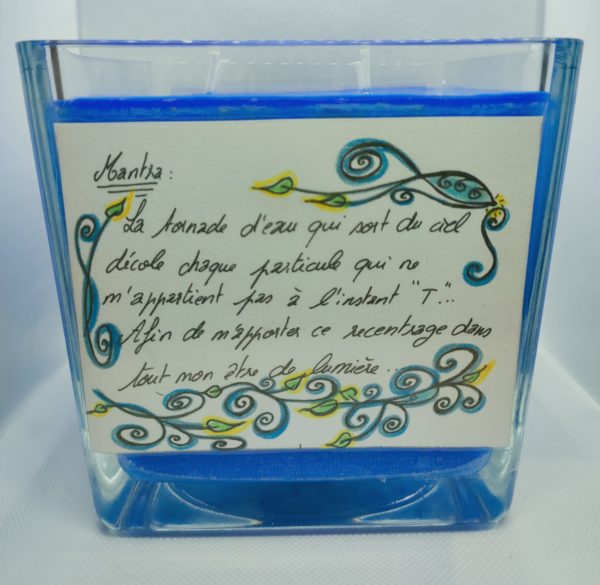 Mantra :
La tornade d'eau qui sort du ciel
décole chaque particule qui ne
m'appartient pas à l'instant "T"...
Afin de m'apporter ce recentrage dans
tout mon être de lumière...